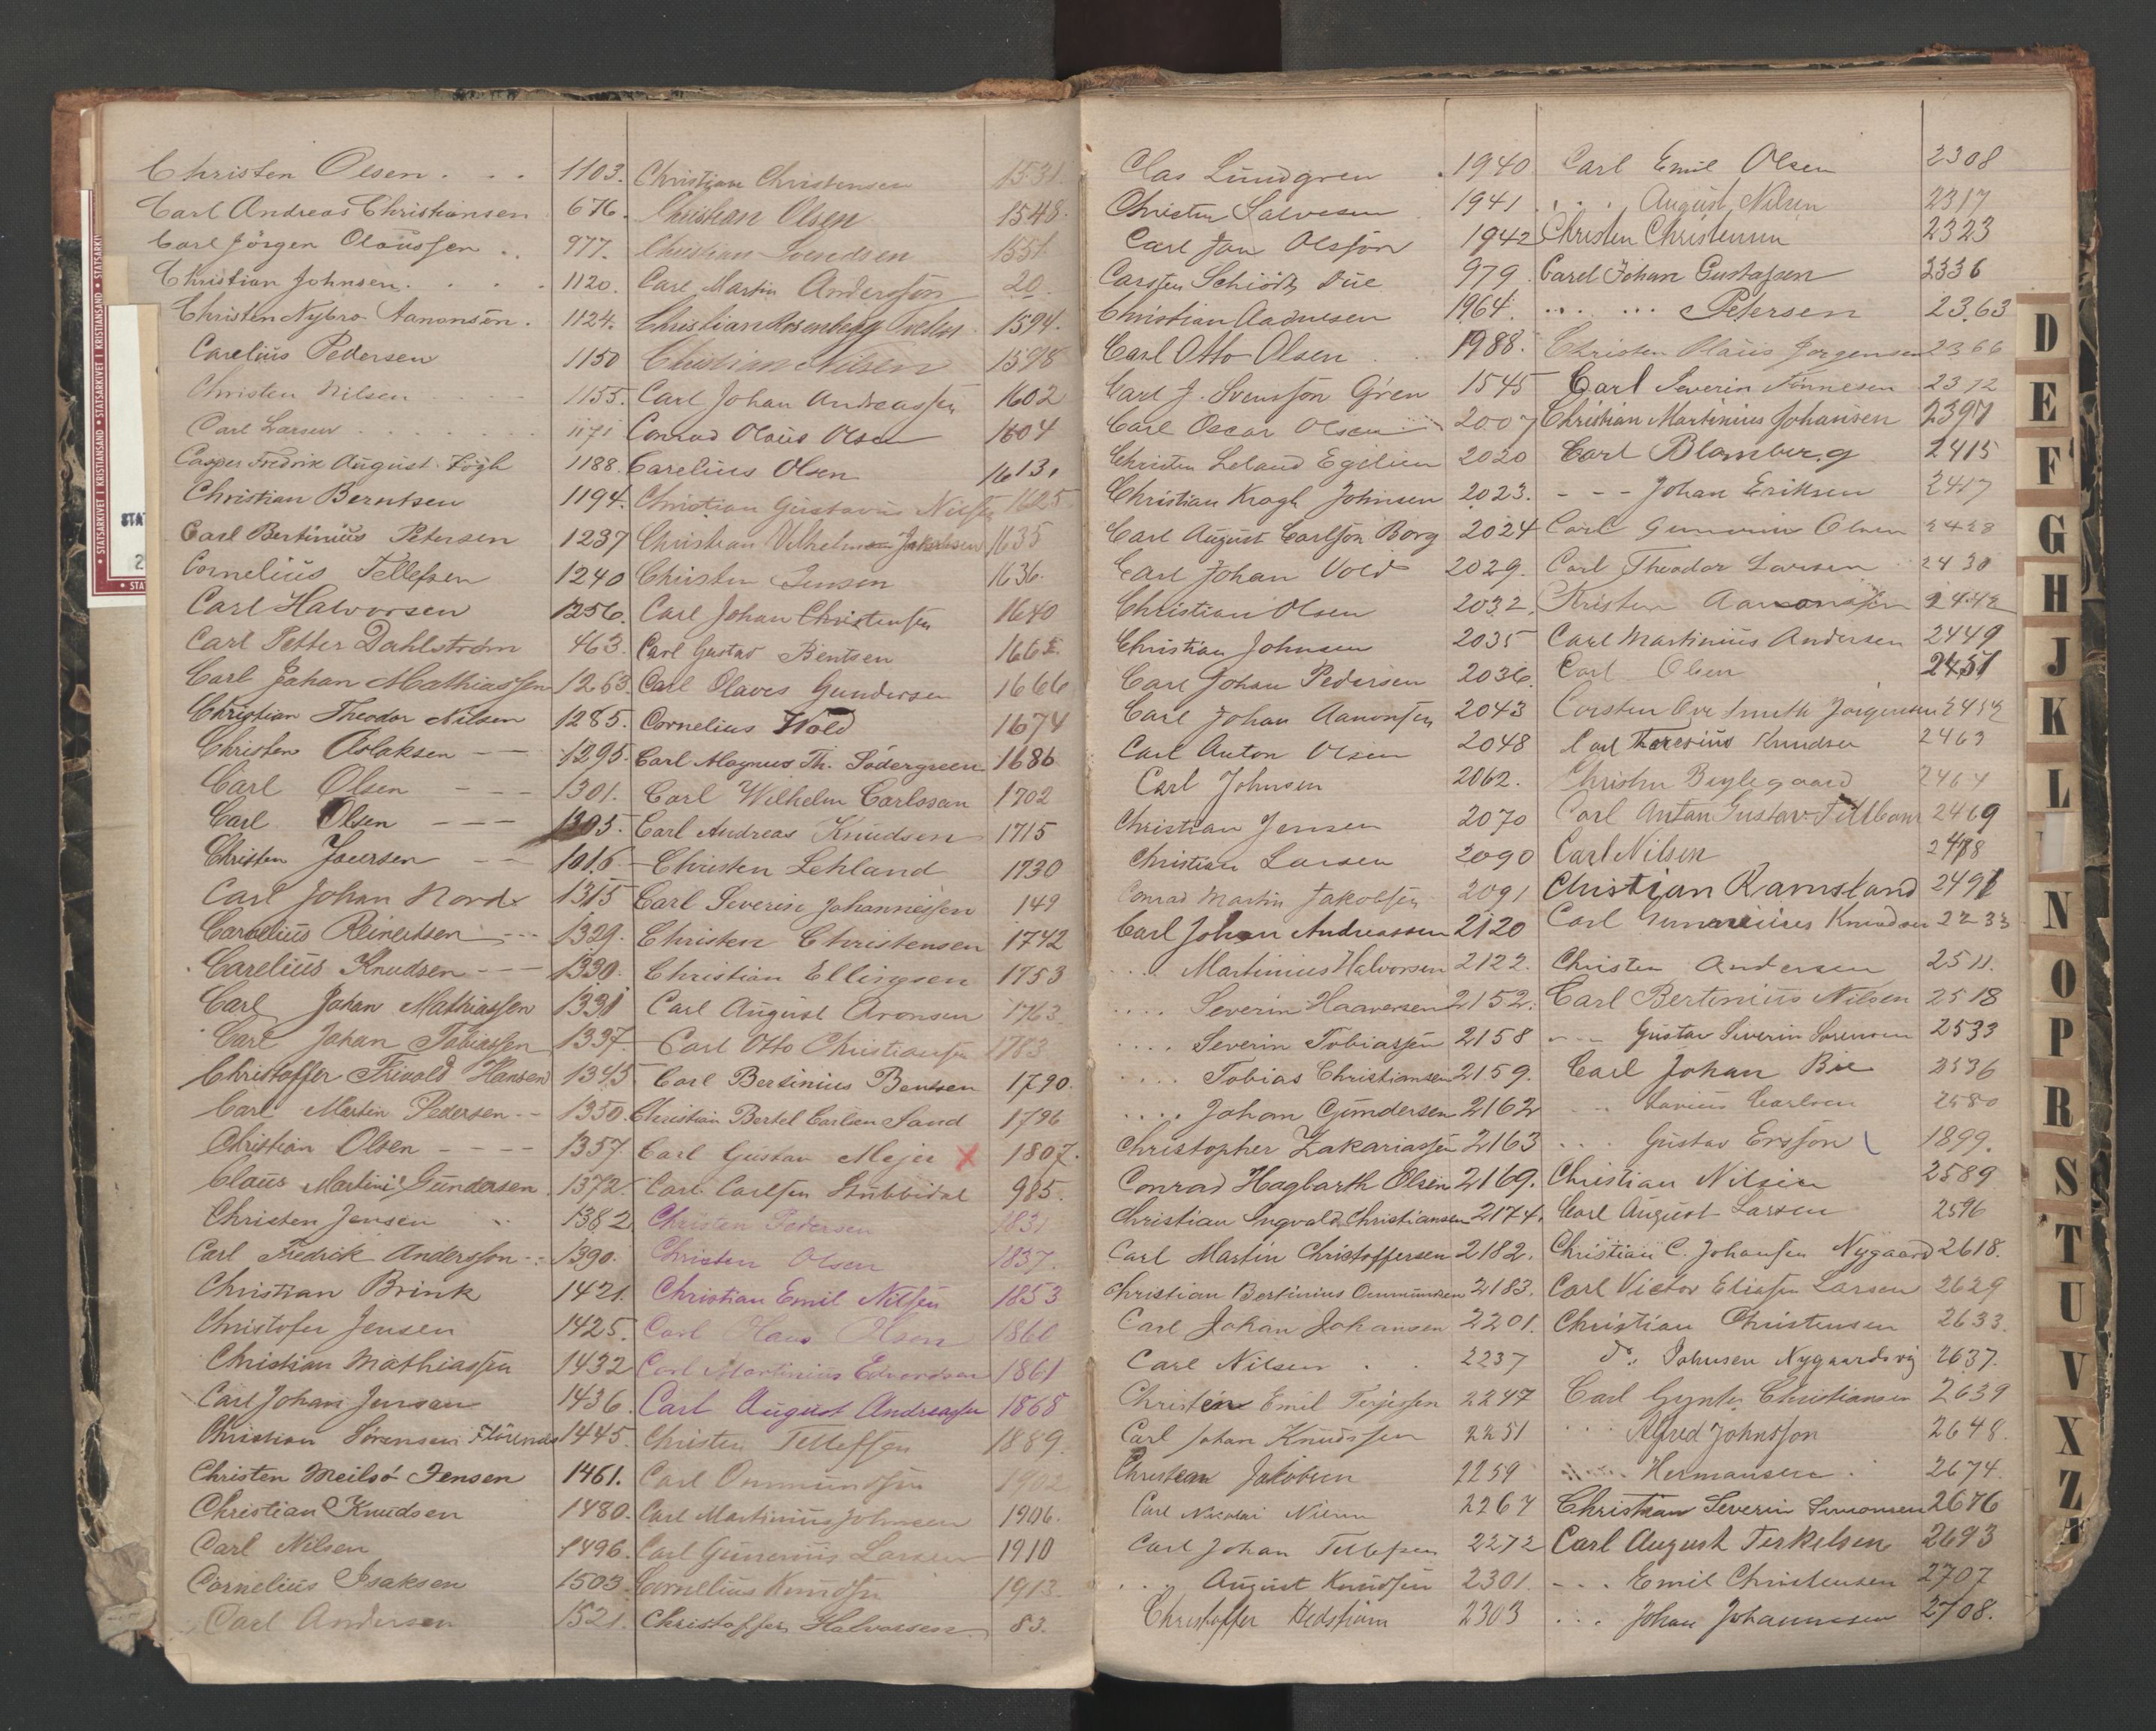 Christen Olsen . . . 1103.
Carl Andreas Christiansen 676.
Carl Jörgen Olaussen . . 977.
Christian Johnsen . . . . 1120.
Christen Nybro Aanonsen . 1124.
Carelius Pedersen 1150
Christen Nilsen 1155.
Carl Larsen 1171
Casper Fredrik August 1188.
Christian Berntsen 1194.
Carl Bertinius Petersen 1237
Cornelius Tellefsen 1240
Carl Halvorsen 1256.
Carl Petter Dahlström 463.
Carl Johan Mathiassen 1263.
Christian Theodor Nilsen 1285.
Christen Aslaksen - - 1295.
Carl Olsen - - - 1301.
Carl Olsen - - - 1305.
Christen - - 1016.
Carl Johan Nord 1315
Carelius Reinertsen - - - 1329.
Carelius Knudsen - - - 1330.
Carl Johan Mathiassen 1331
Carl Johan Tobiassen 1337.
Christoffer Hansen 1345
Carl Martin Pedersen - - 1350.
Christian Olsen - - - - 1357.
Claus Martini Gundersen. 1372.
Christen Jensen . . 1382
Carl Fredrik Andersson . . 1390.
Christian Brink 1421.
Christofer Jensen 1425.
Christian Mathiassen 1432
Carl Johan Jensen 1436.
Christian Sörensen 1445.
Christen Meilsö Jensen 1461.
Christian Knudsen 1480.
Carl Nilsen 1496.
Cornelius Isaksen 1503.
Carl Andersen 1521.
Christian Christensen 1531.
Christian Olsen 1548.
Christian Svendsen 1551.
Carl Martin Andersson 20.
Christian Rosenberg 1594.
Christian Nilsen 1598
Carl Johan Andreassen 1602
Conrad Olaus Olsen 1604
Carelius Olsen 1613.
Christian Gustavus Nilsen 1625.
Christian Vilhelm Jakobsen 1635
Christen Jensen 1636.
Carl Johan Christensen 1640
Carl Gustav Bentsen
Carl Olaves Gundersen 1666
Cornelius Wold 1674
Carl Magnus Th. Södergreen 1686
Carl Wilhelm Carlsson 1702
Carl Andreas Knudsen 1715
Christen Lehland 1730
Carl Severin Johannessen 149
Christen Christensen 1742
Christian Ellingsen 1753
Carl August Aronsen 1763
Carl Otto Christiansen 1783
Carl Bertinius Bentsen 1790.
Christian Bertel Carlsen Sand 1796
Carl Gustav Mejer x 1807.
Carl Carlsen Stubbidal 985.
Christen Pedersen 1831
Christen Olsen 1837.
Christian Emil Nilsen 1853
Carl Hans Olsen 1860
Carl Martinius Edvardsen 1861
Carl August Andreassen 1868
Christen Tellefsen 1889.
Carl Ommundsen 1902
Carl Martinius Johnsen 1906.
Carl Gunerius Larsen 1910
Cornelius Knudsen 1913.
Christoffer Halvorsen 83.
Clas Lundgren . 1940
Christen Salvesen 1941
Carl Jon Olsson 1942
Carsten Schiödt Due 979
Christian Aadnesen 1964.
Carl Otto Olsen . . 1988.
Carl J. Svensson Gren 1545
Carl Oscar Olsen 2007
Christen Leland Egelien 2020
Christian Kragh Johnsen 2023.
Carl August Carlsson Borg 2024
Carl Johan Vold 2029.
Christian Olsen 2032.
Christian Johnsen 2035
Carl Johan Pedersen 2036.
Carl Johan Aanonsen 2043
Carl Anton Olsen 2048
Carl Johnsen 2062.
Christian Jensen 2070
Christian Larsen 2090
Conrad Martin Jakobsen 2091
Carl Johan Andreassen 2120
. . . . Martinius Halvorsen 2122.
. . . . Severin Haaversen 2152.
. . . . Severin Tobiassen 2158
. . . . Tobias Christiansen 2159.
. . . . Johan Gundersen 2162
Christopher Zakariassen 2163
Conrad Hagbarth Olsen 2169.
Christian Ingvald Christiansen 2174.
Carl Martin Christoffersen 2182.
Christian Bertinius Ommundsen 2183.
Carl Johan Johansen 2201.
Carl Nilsen . . 2237
Christen Emil Terjesen 2247
Carl Johan Knudsen 2251
Christian Jakobsen 2259
Carl Nicolai 2267
Carl Johan Tellefsen 2272
. . August Knudsen 2301.
Christoffer Hedström 2303
Carl Emil Olsen 2308
. . . August Nilsen 2317
Christen Christensen 2323
Carel Johan Gustafsen 2336
. . . . . . Petersen 2363
Christen Olaus Jorgensen 2366
Carl Severin Tönnesen 2372
Christian Martinius Johansen 2397
Carl Blomberg 2415
- - - Johan Eriksen 2417
Carl Olsen 2428
Carl Theodor Larsen 2430
Kristen Aanonsen 2442
Carl Martinius Andersen 2449
Carl Olsen 2451
Carsten Ove Smith Jörgensen 2452
Carl Theresius Knudsen 2463
Christen Bryllegaard 2464
Carl Anton Gustav 2469
Carl Nilsen 2478
Christian Ramsland 2491
Carl Knudsen 2233
Christen Andersen 2511.
Carl Bertinius Nilsen 2518
- - - Gustav Severin Sörensen 2533
Carl Johan Bie 2536
. . Carlsen 2580
. . . Gustav Ersson 1899.
Christian Nilsen 2589
Carl August Larsen 2596
Christian C. Johansen Nygaard 2618.
Carl Victor Eliassen Larsen 2629
Christian Christensen 2633.
do. Johnsen Nygaardsvig 2637.
Carl Christiansen 2639
. . . Alfred Johnsson 2648.
. . . Hermansen . 2674.
Christian Severin Simonsen 2676
Carl August Terkelsen 2693
- - . Emil Christensen 2707
. . . Johan Johannessen 2708.
D
E
F
G
H
J
K
L
N
O
P
R
S
T
U
V
X
Z
• STATSARKIVET I KRISTIANSAND • STATSARKIVET I KRISTIANSAND • STATSARKI
STA
2
• STA